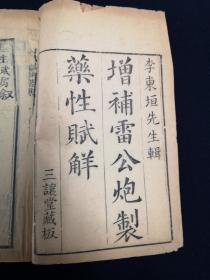 李東垣先生輯
增補雷公炮製
藥性賦解
三讓堂藏板